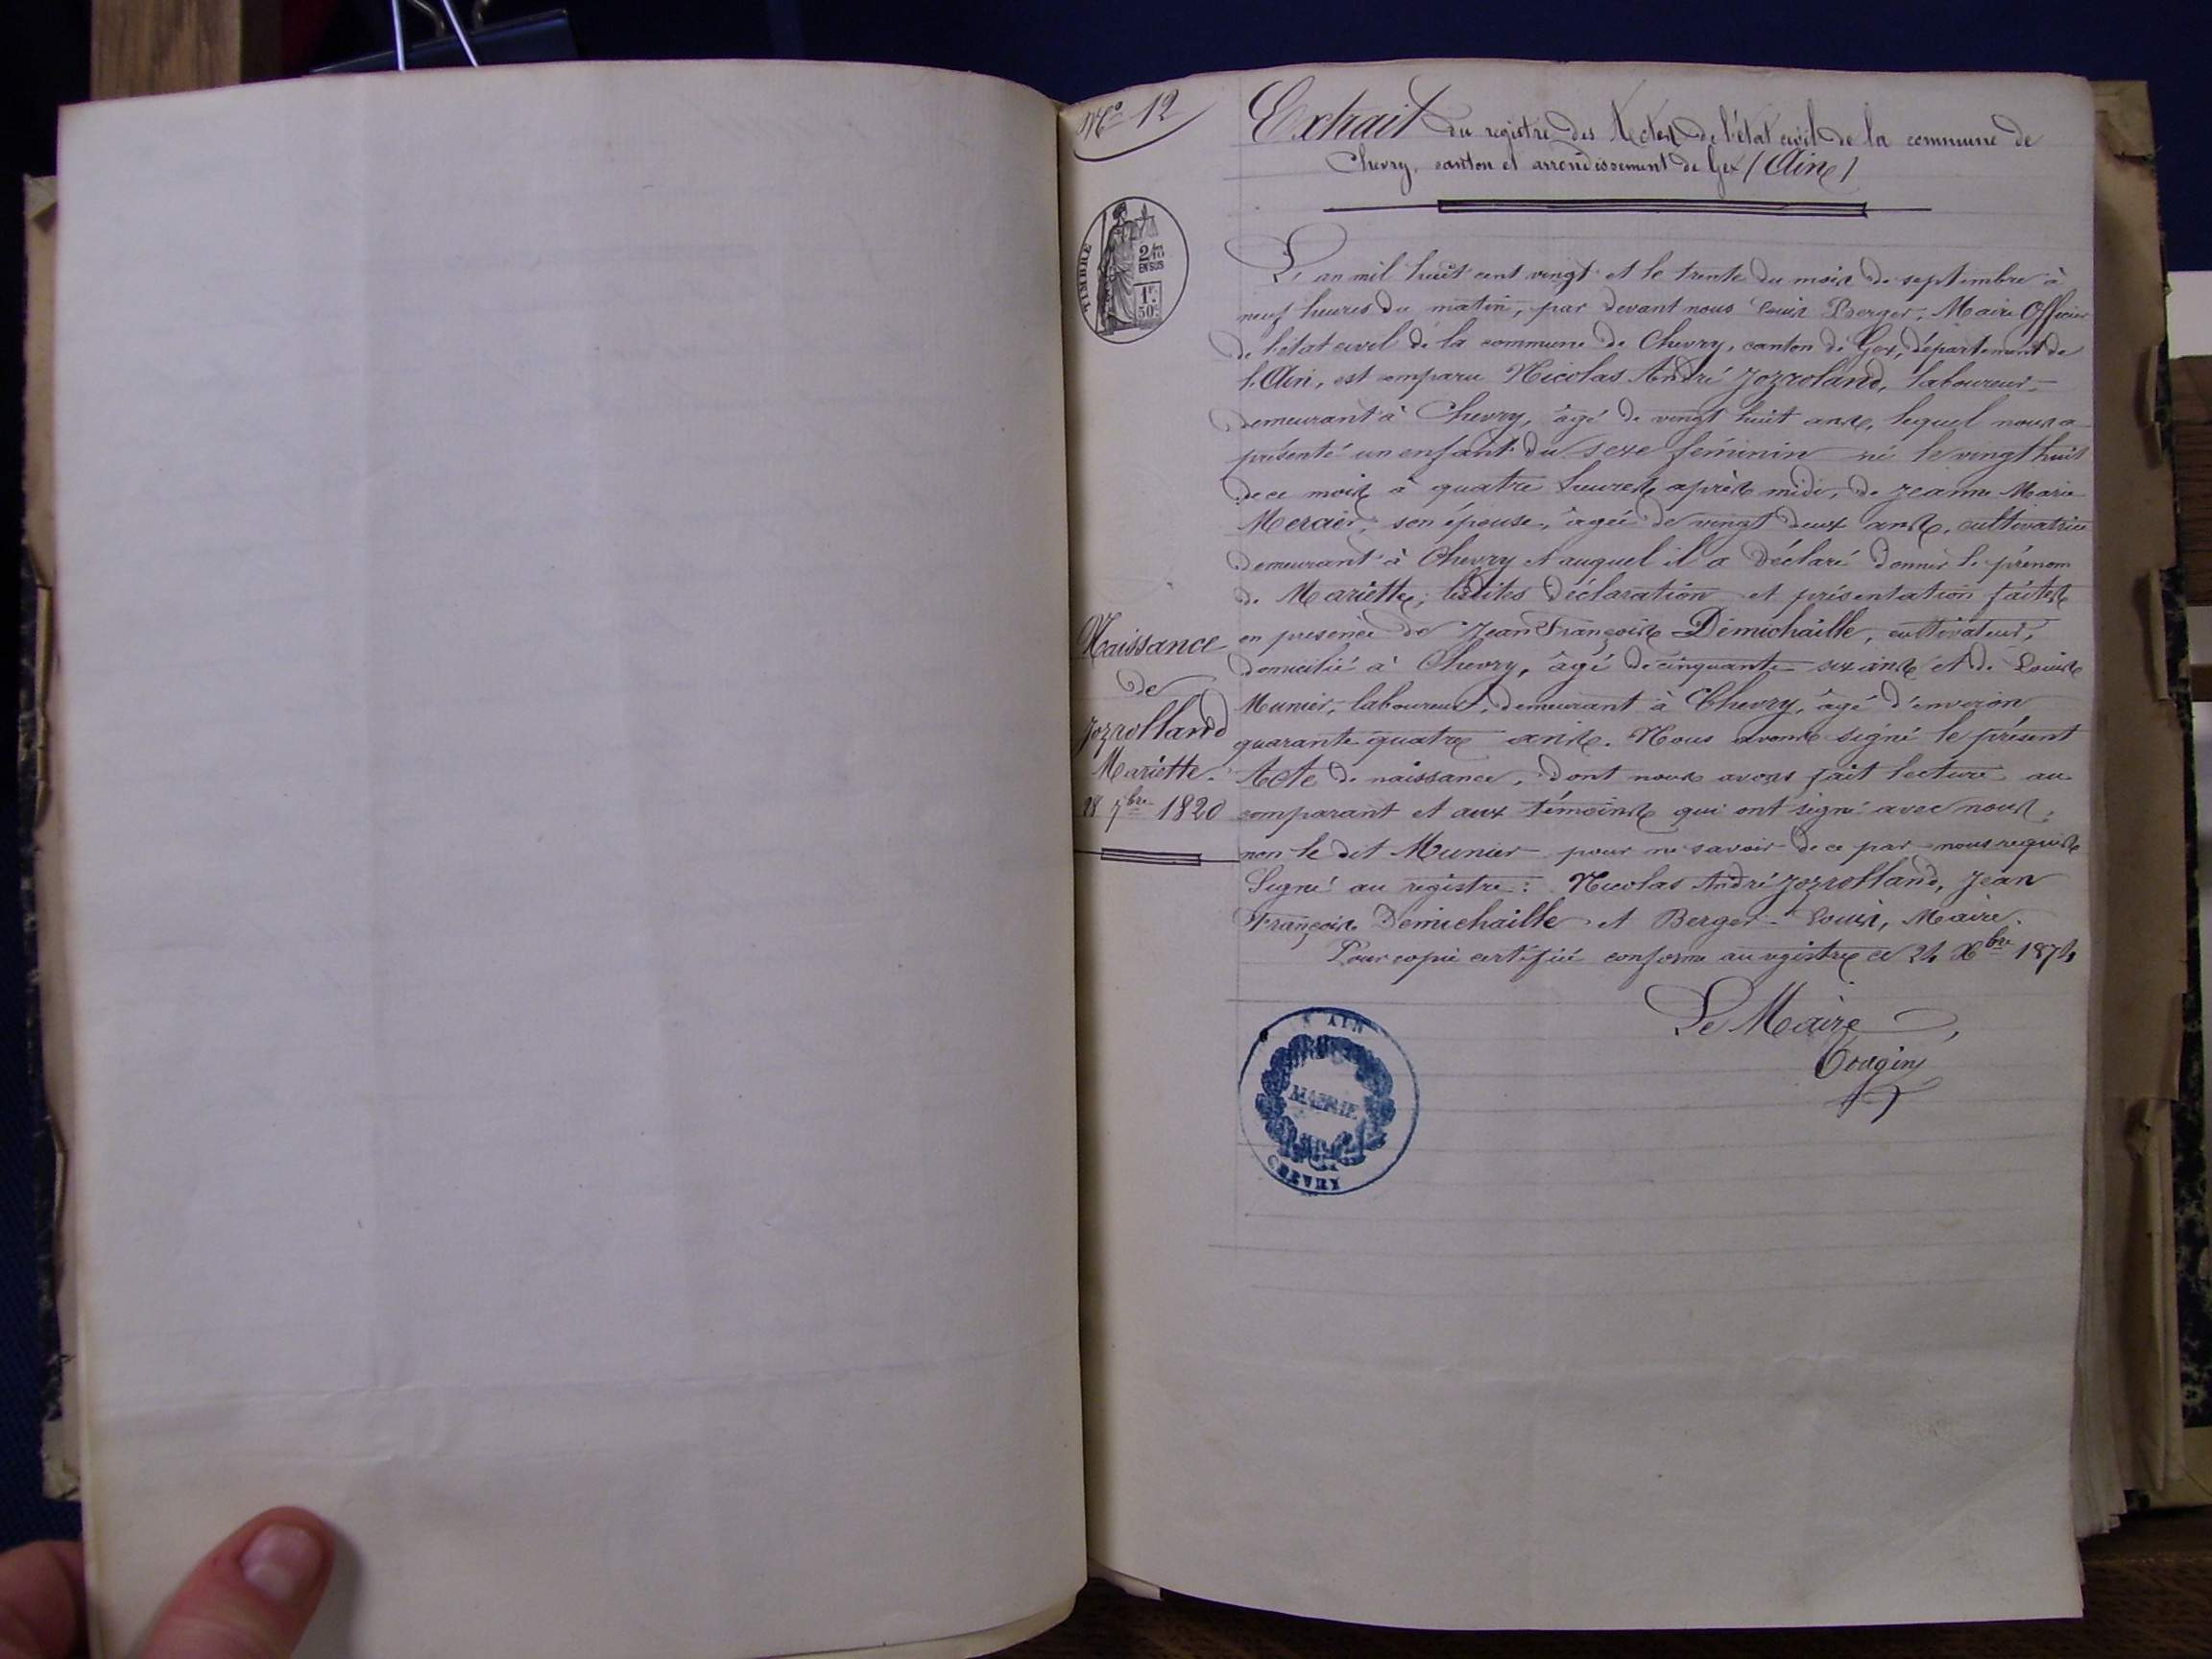 N° 12
Extrait du registre des Actes de l'état civil de la commune de
Chevry, canton et arrondissement de Gex (Ain)
TIMBRE
2/10
EN SUS
1F.
50c.
L'an mil huit cent vingt et le trente du mois de septembre à
neuf heures du matin, par devant nous Louis Berger, Maire Officier
de l'état civil de la commune de Chevry, canton de Gex, département de
l'Ain, est comparu Nicolas André Jozroland, laboureur,
demeurant à Chevry, âgé de vingt huit ans, lequel nous a
présenté un enfant du sexe féminin né le vingt huit
de ce mois à quatre heures après midi, de Jeanne Marie
Mercier, son épouse, âgée de vingt deux ans, cultivatrice
demeurant à Chevry et auquel il a déclaré donner le prénom
de Mariette; lesdites déclaration et présentation faites
en présence de Jean François Démichaille, cultivateur,
domicilié à Chevry, âgé de cinquante six ans et de Louis
Munier, laboureur, demeurant à Chevry, âgé d'environ
quarante quatre ans. Nous avons signé le présent
Acte de naissance, dont nous avons fait lecture au
comparant et aux témoins qui ont signé avec nous,
non le dit Munier pour ne savoir de ce par nous requis
Signé au registre : Nicolas André Jozrolland, Jean
François Demichaille et Berger Louis, Maire.
Pour copie certifiée conforme au registre ce 24 Xbre 1874
Le Maire
Naissance
de
Jozrolland
Mariette.
28 7bre 1820
AIN
MAIRIE
CHEVRY